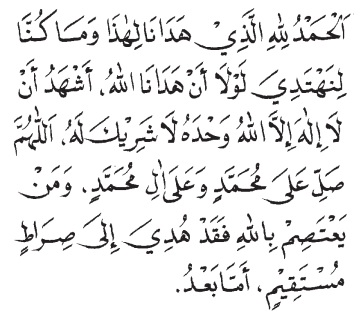 اَلْحَمْدُ لِلّٰهِ الَّذِيْ هَدَانَا لِهٰذَا وَمَا كُنَّا
لِنَهْتَدِيَ لَوْلَا أَنْ هَدَانَا اللهُ، أَشْهَدُ أَنْ
لَا إِلٰهَ إِلَّا اللهُ وَحْدَهُ لَا شَرِيْكَ لَهُ، اَللّٰهُمَّ
صَلِّ عَلَى مُحَمَّدٍ وَعَلَى اٰلِ مُحَمَّدٍ، وَمَنْ
يَعْتَصِمْ بِاللهِ فَقَدْ هُدِيَ إِلَى صِرَاطٍ
مُسْتَقِيْمٍ، أَمَّا بَعْدُ.